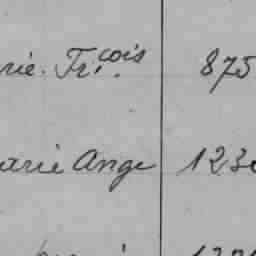 rie. Fr.çois 875
arie Ange 123